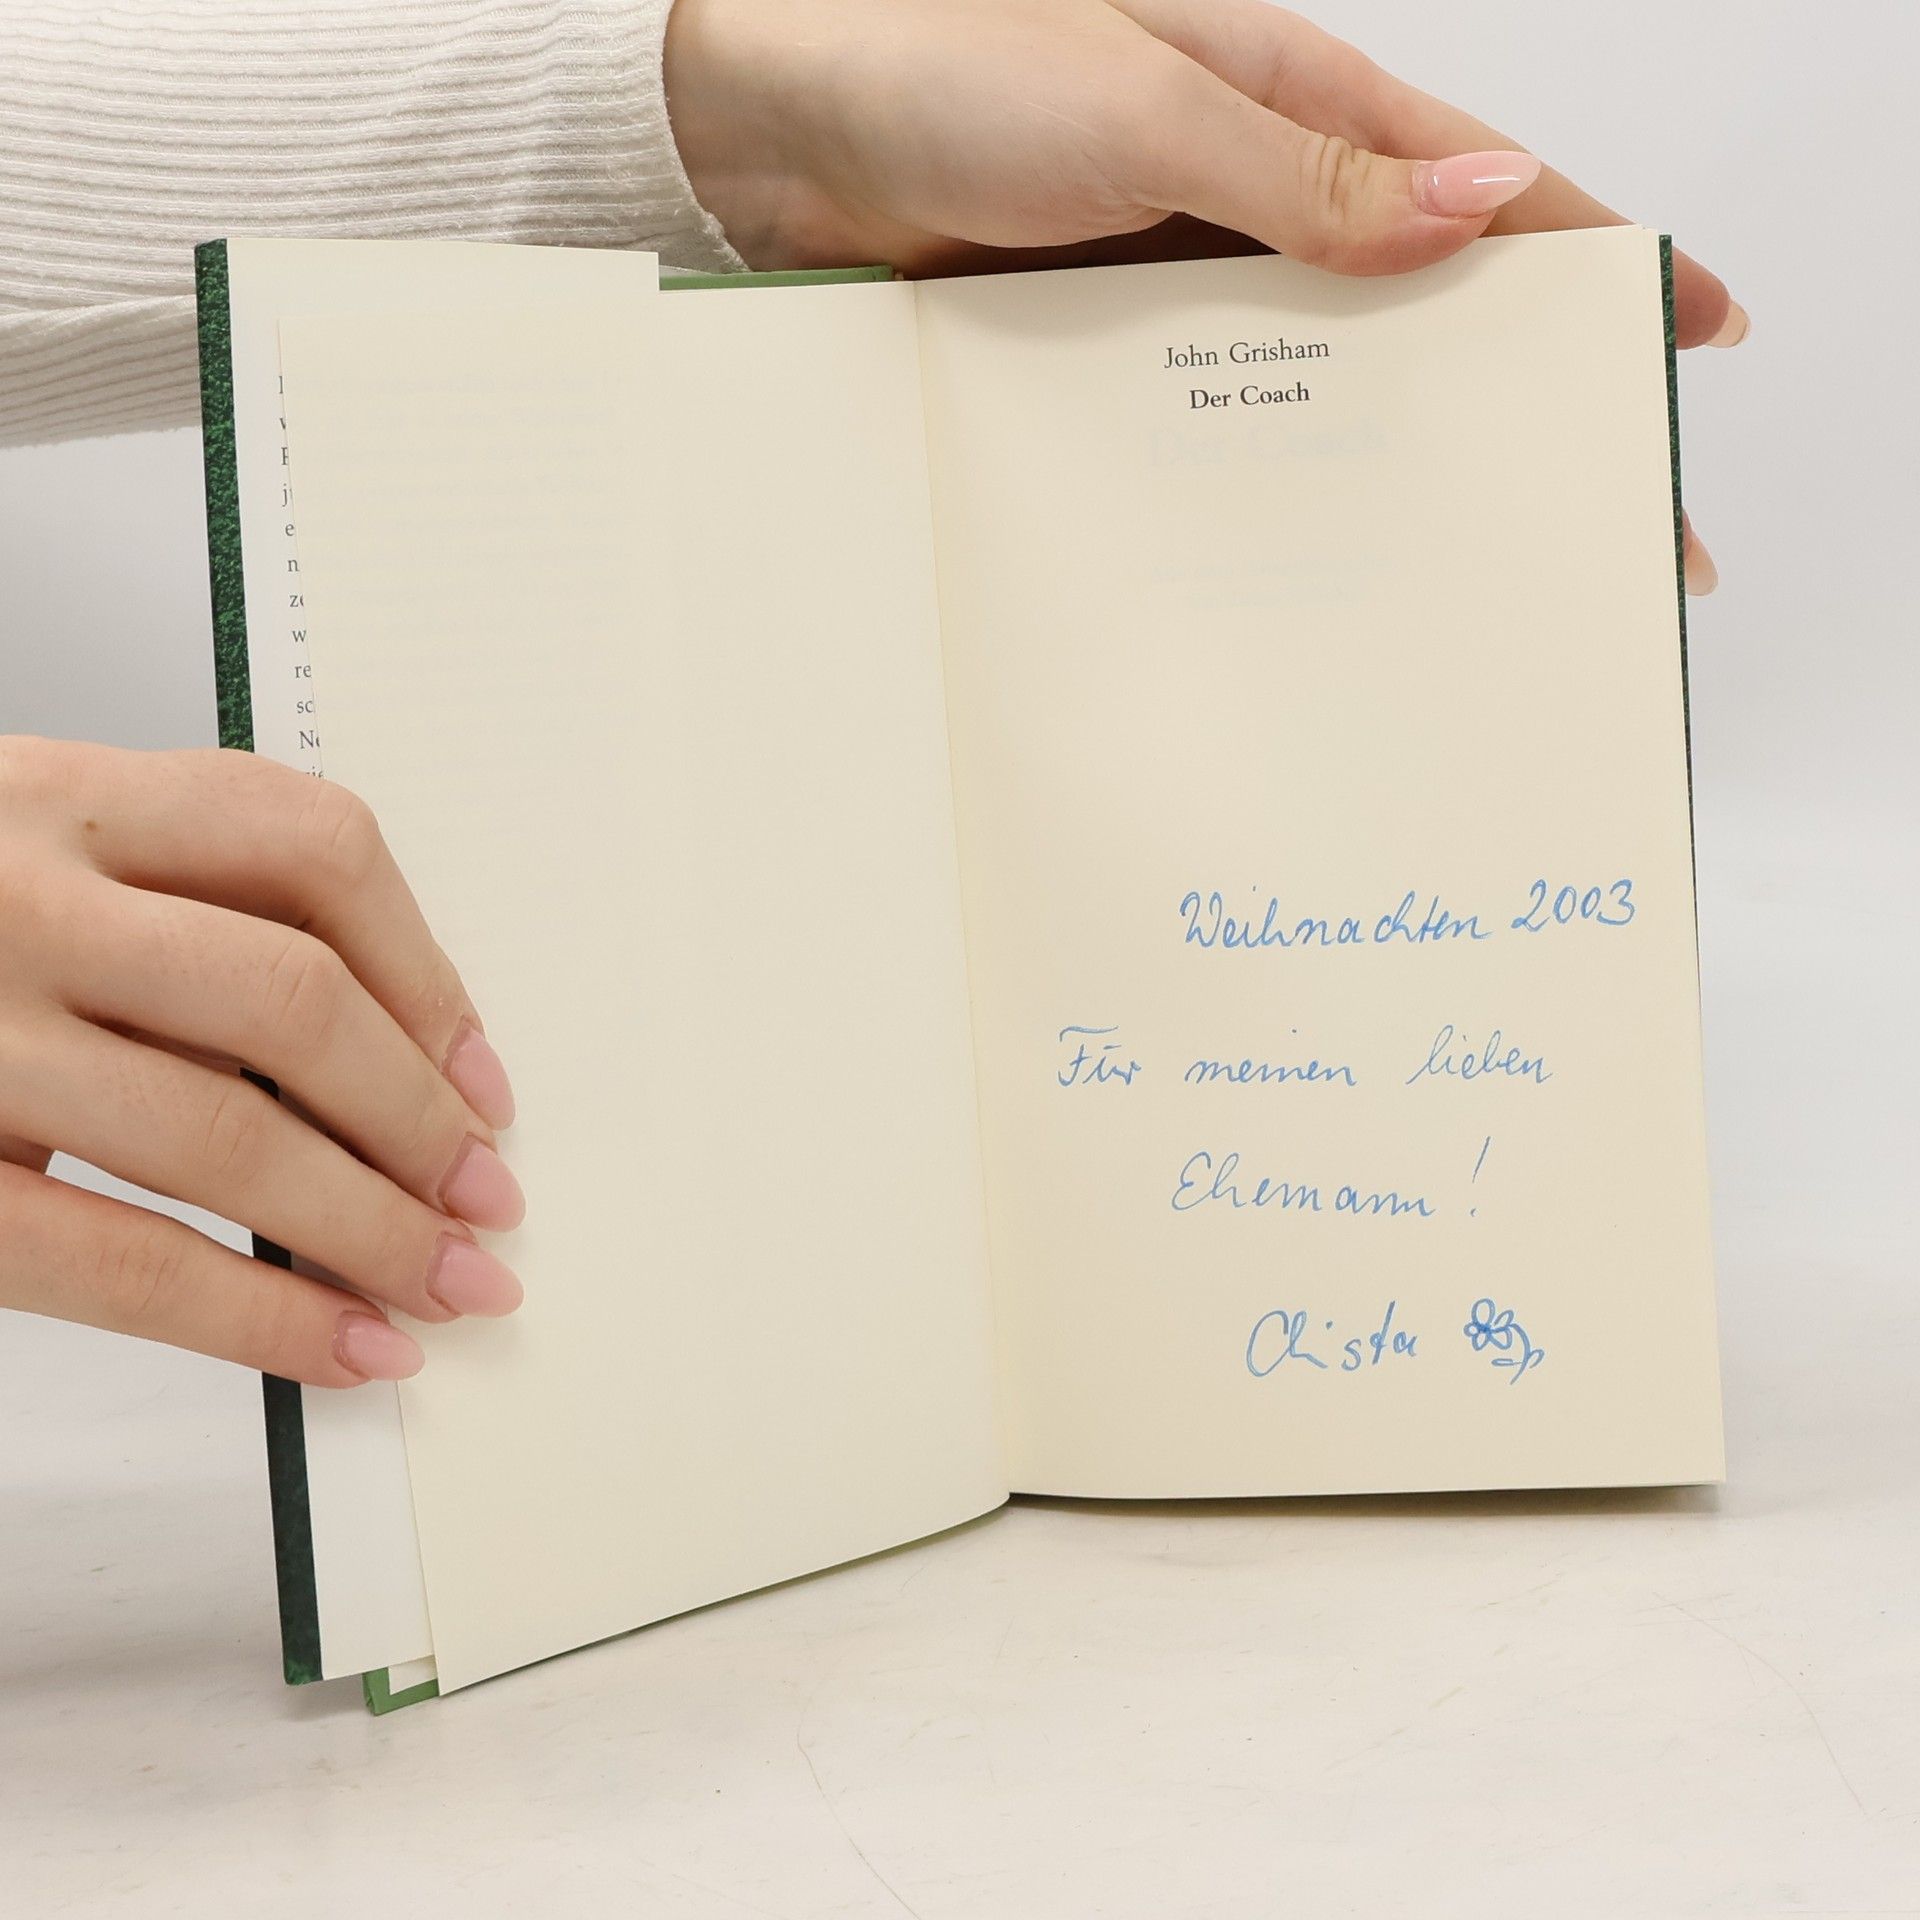 John Grisham
Der Coach
Weihnachten 2003
Für meinen lieben
Ehemann!
Christa